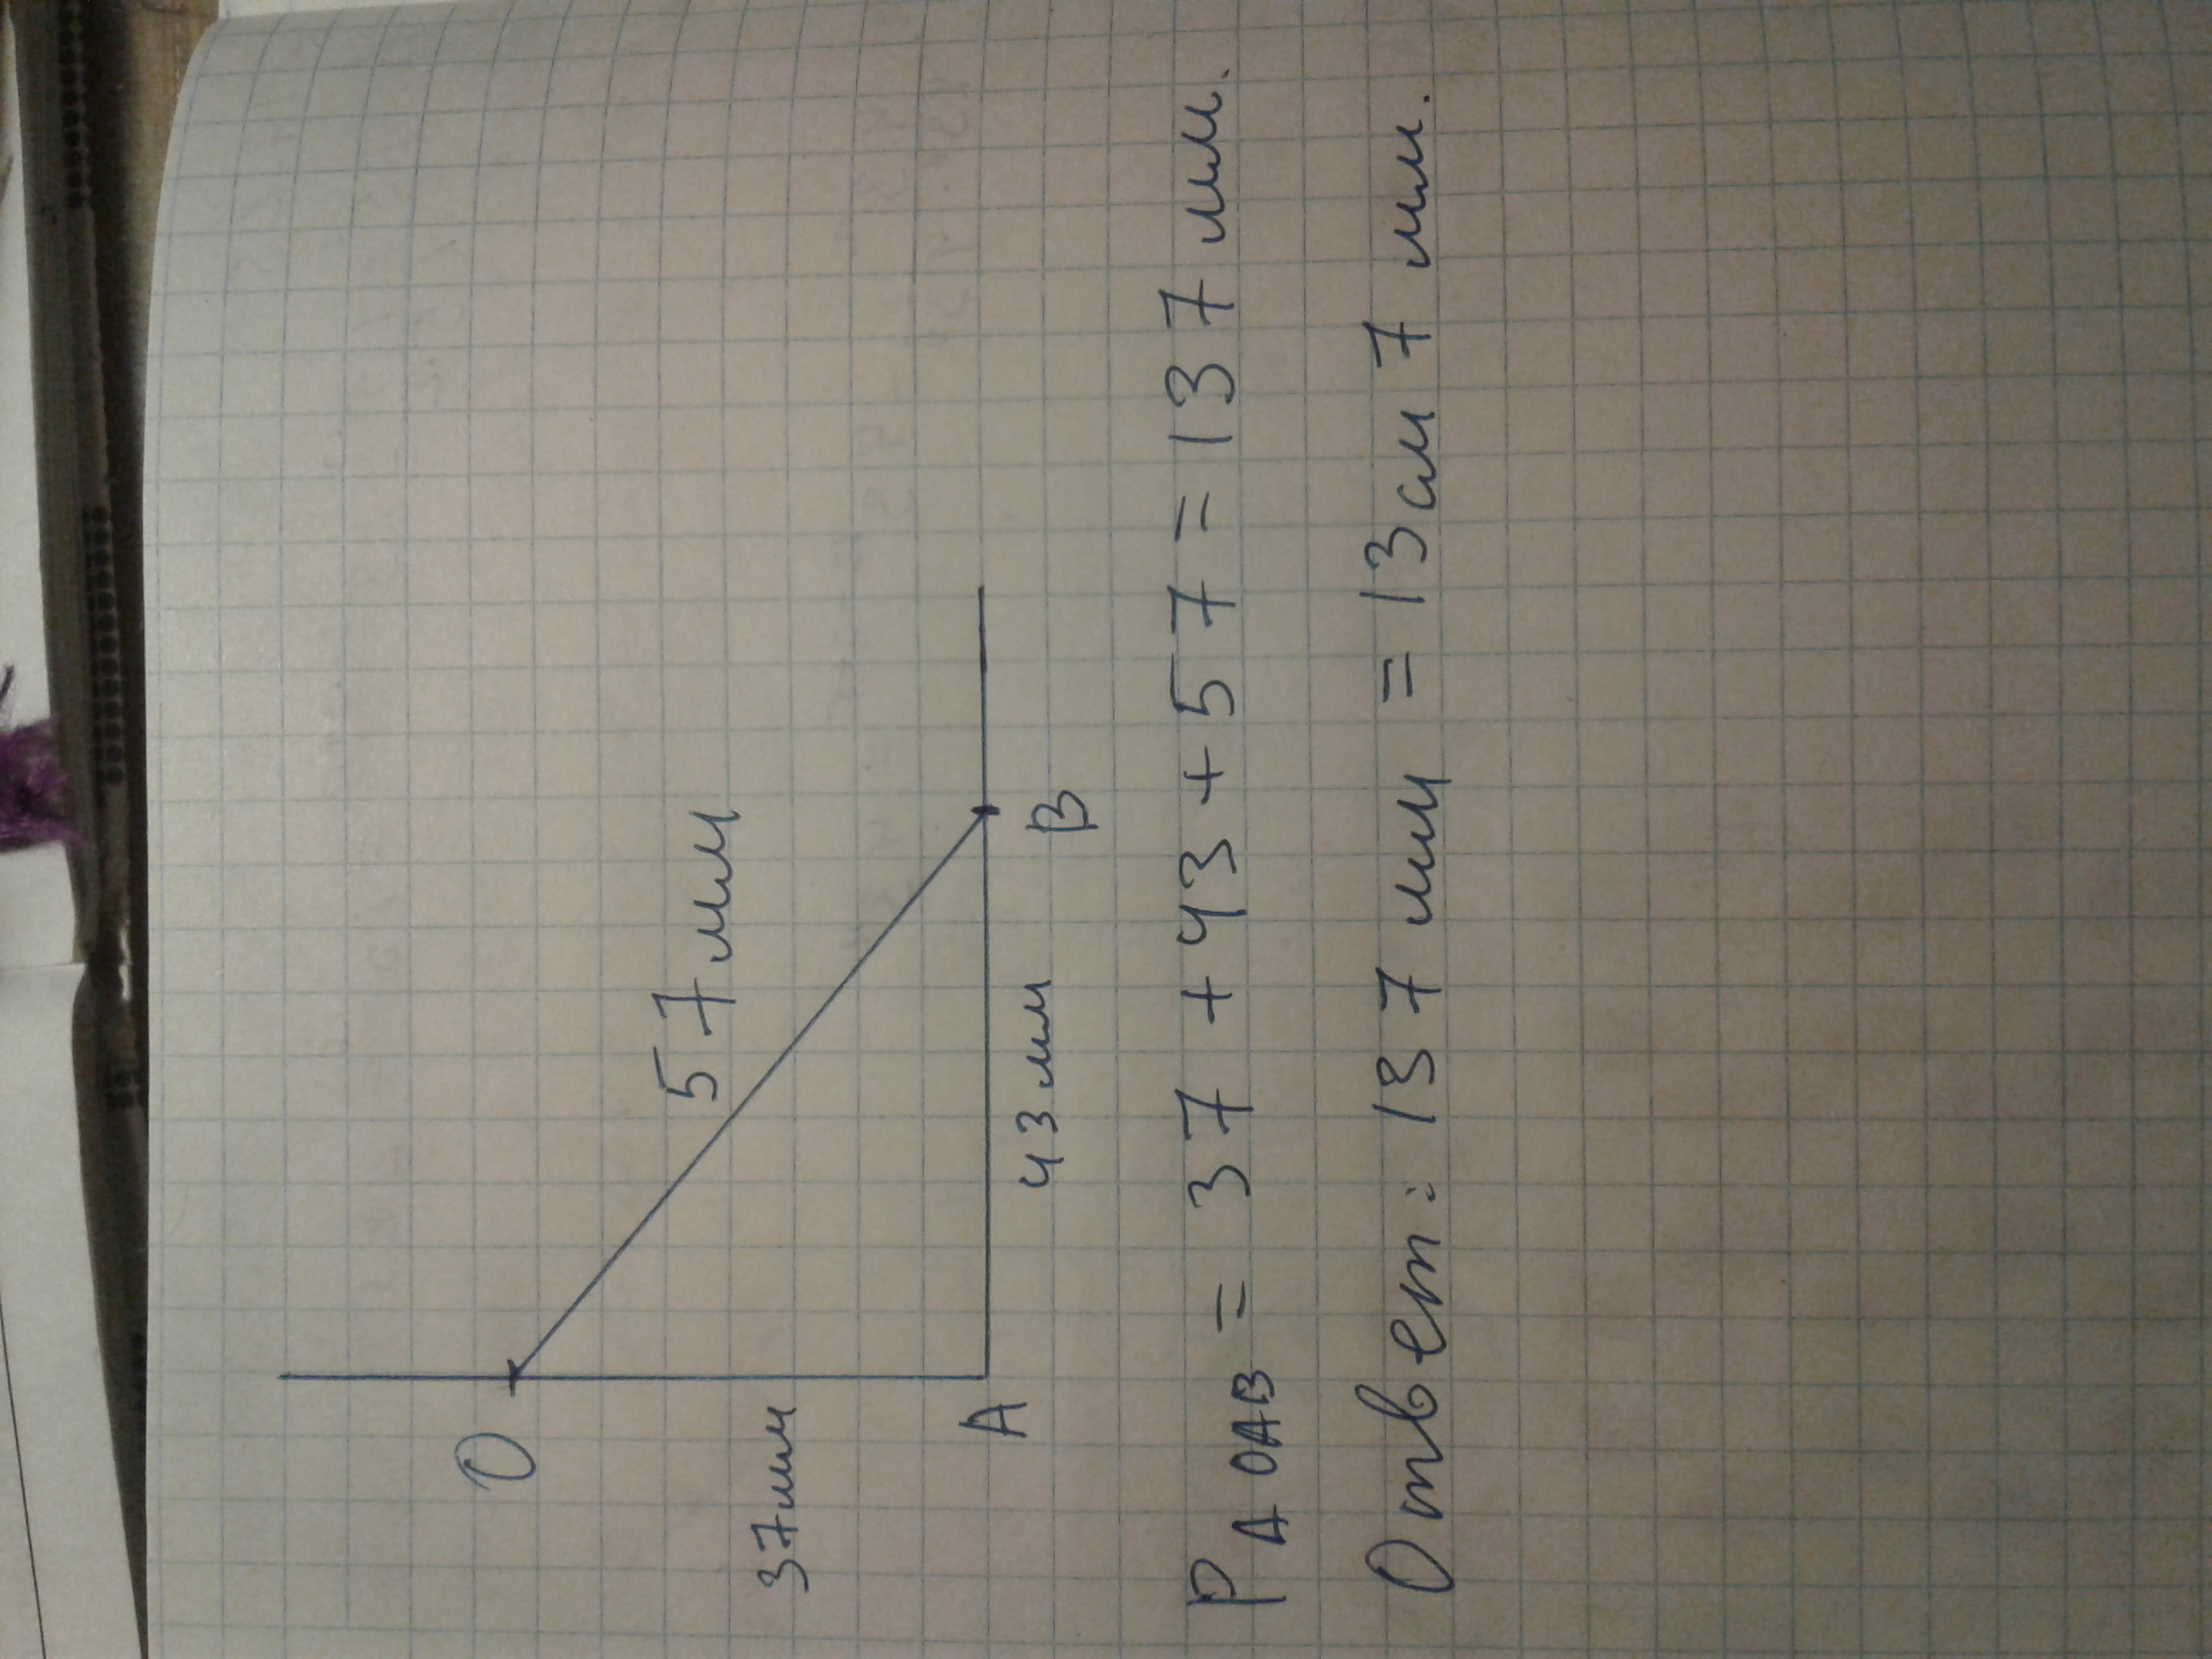 O
57 мм
37 мм
A
43 мм
B
P ∆ OAB = 37 + 43 + 57 = 137 мм.
Ответ: 137 мм = 13 см 7 мм.